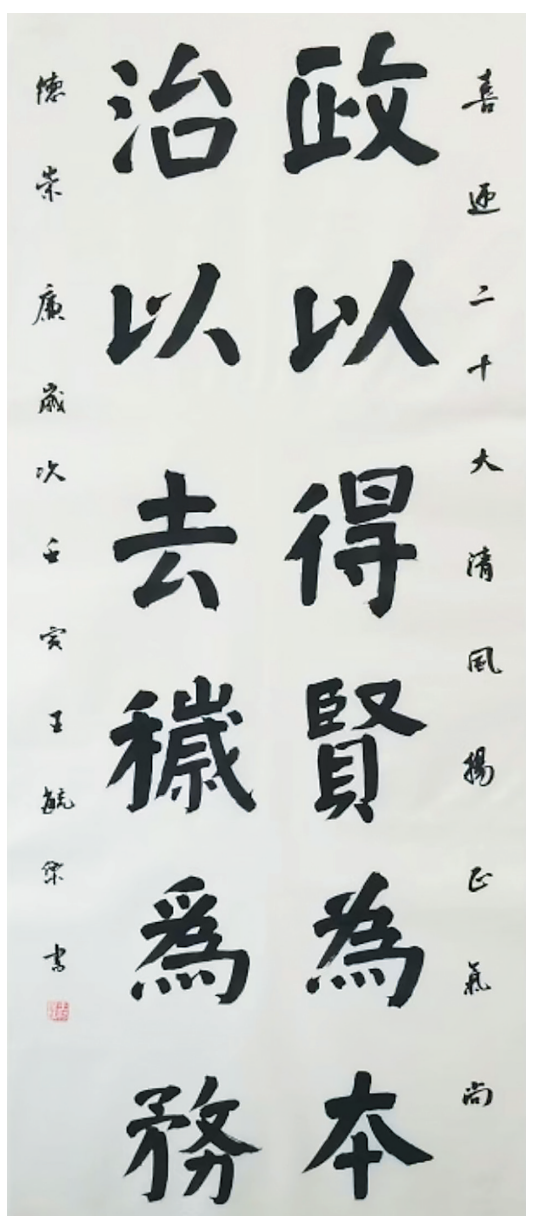 喜迎二十大清風揚正氣尚
政以得賢為本
治以去穢爲務
德崇廉歲次壬寅王毓榮書